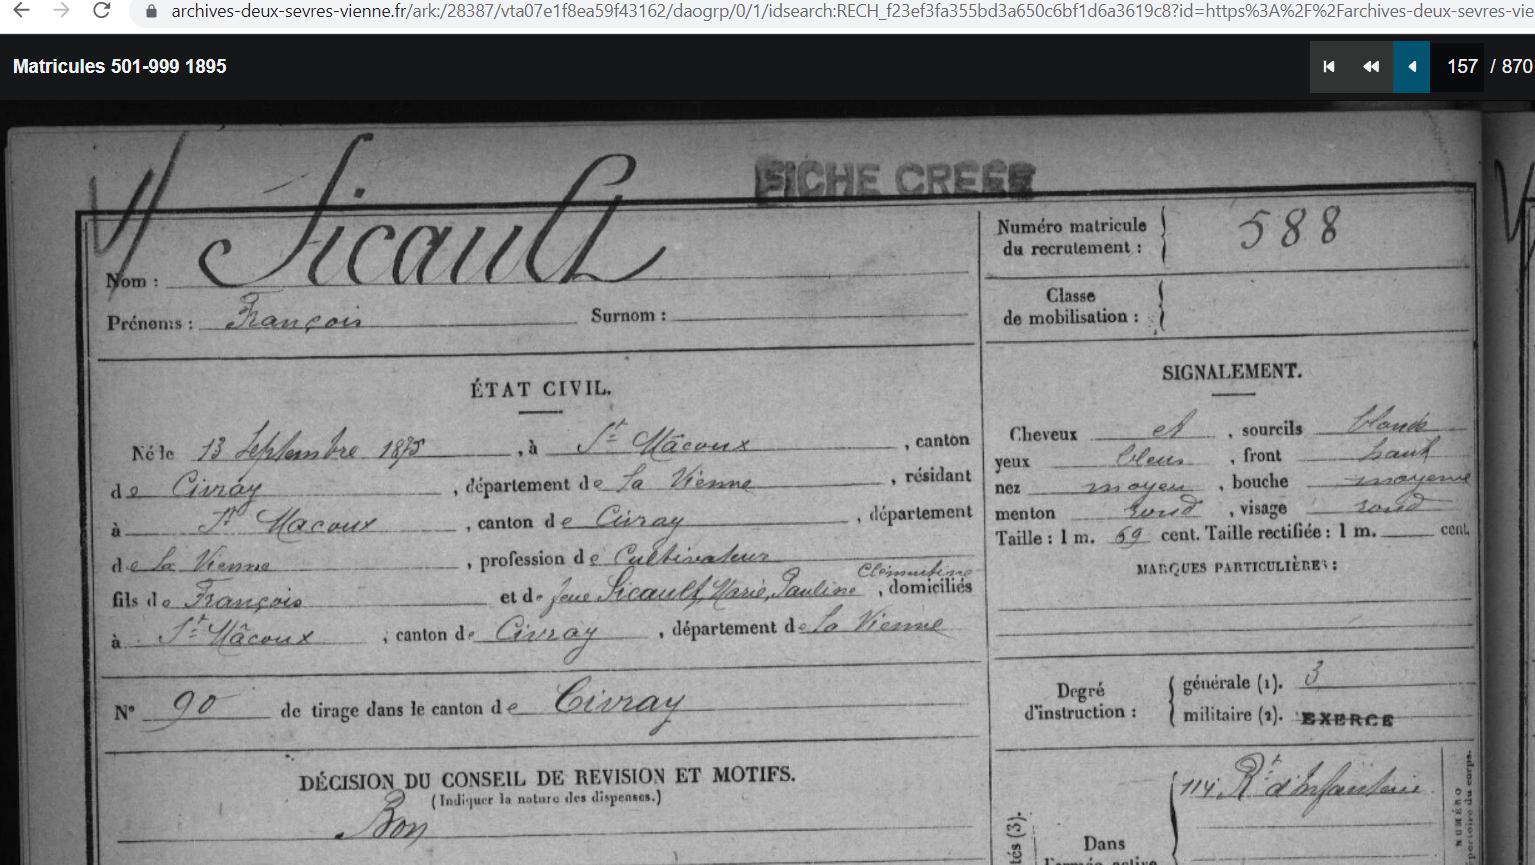 archives-deux-sevres-vienne.fr/ark:/28387/vta07e1f8ea59f43162/daogrp/0/1/idsearch:RECH_f23ef3fa355bd3a650c6bf1d6a3619c8?id=https%3A%2F%2Farchives-deux-sevres-vie
Matricules 501-999 1895
157 / 870
FICHE CREEE
Nom : Sicault
Prénoms : François Surnom :
Numéro matricule du recrutement : 588
Classe de mobilisation :
ÉTAT CIVIL.
Né le 13 Septembre 1875, à St Mâcoux, canton
de Civray, département de la Vienne, résidant
à St Macoux, canton de Civray, département
de la Vienne, profession de Cultivateur
Clémentine
fils de François et de feue Sicault, Marie, Pauline, domiciliés
à St Mâcoux, canton de Civray, département de la Vienne
N° 90 de tirage dans le canton de Civray
DÉCISION DU CONSEIL DE REVISION ET MOTIFS.
(Indiquer la nature des dispenses.)
Bon
SIGNALEMENT.
Cheveux et, sourcils blonds
yeux bleus, front haut
nez moyen, bouche moyenne
menton rond, visage rond
Taille : 1 m. 69 cent. Taille rectifiée : 1 m. cent.
MARQUES PARTICULIÈRES :
Degré d'instruction :
générale (1). 3
militaire (2). EXERCE
114 Rt d'Infanterie
Dans
l'armée active
tés (3).
NUMÉRO